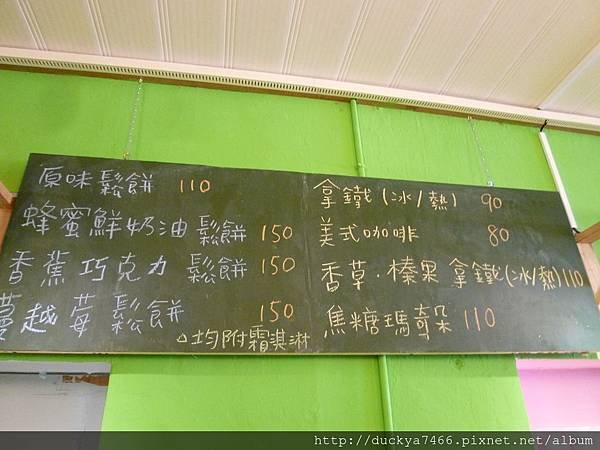 原味鬆餅 110
蜂蜜鮮奶油鬆餅 150
香蕉巧克力鬆餅 150
蔓越莓鬆餅 150
△均附霜淇淋
拿鐵(冰/熱) 90
美式咖啡 80
香草.榛果拿鐵(冰/熱)110
焦糖瑪奇朵 110
http://duckya7466.pixnet.net/album